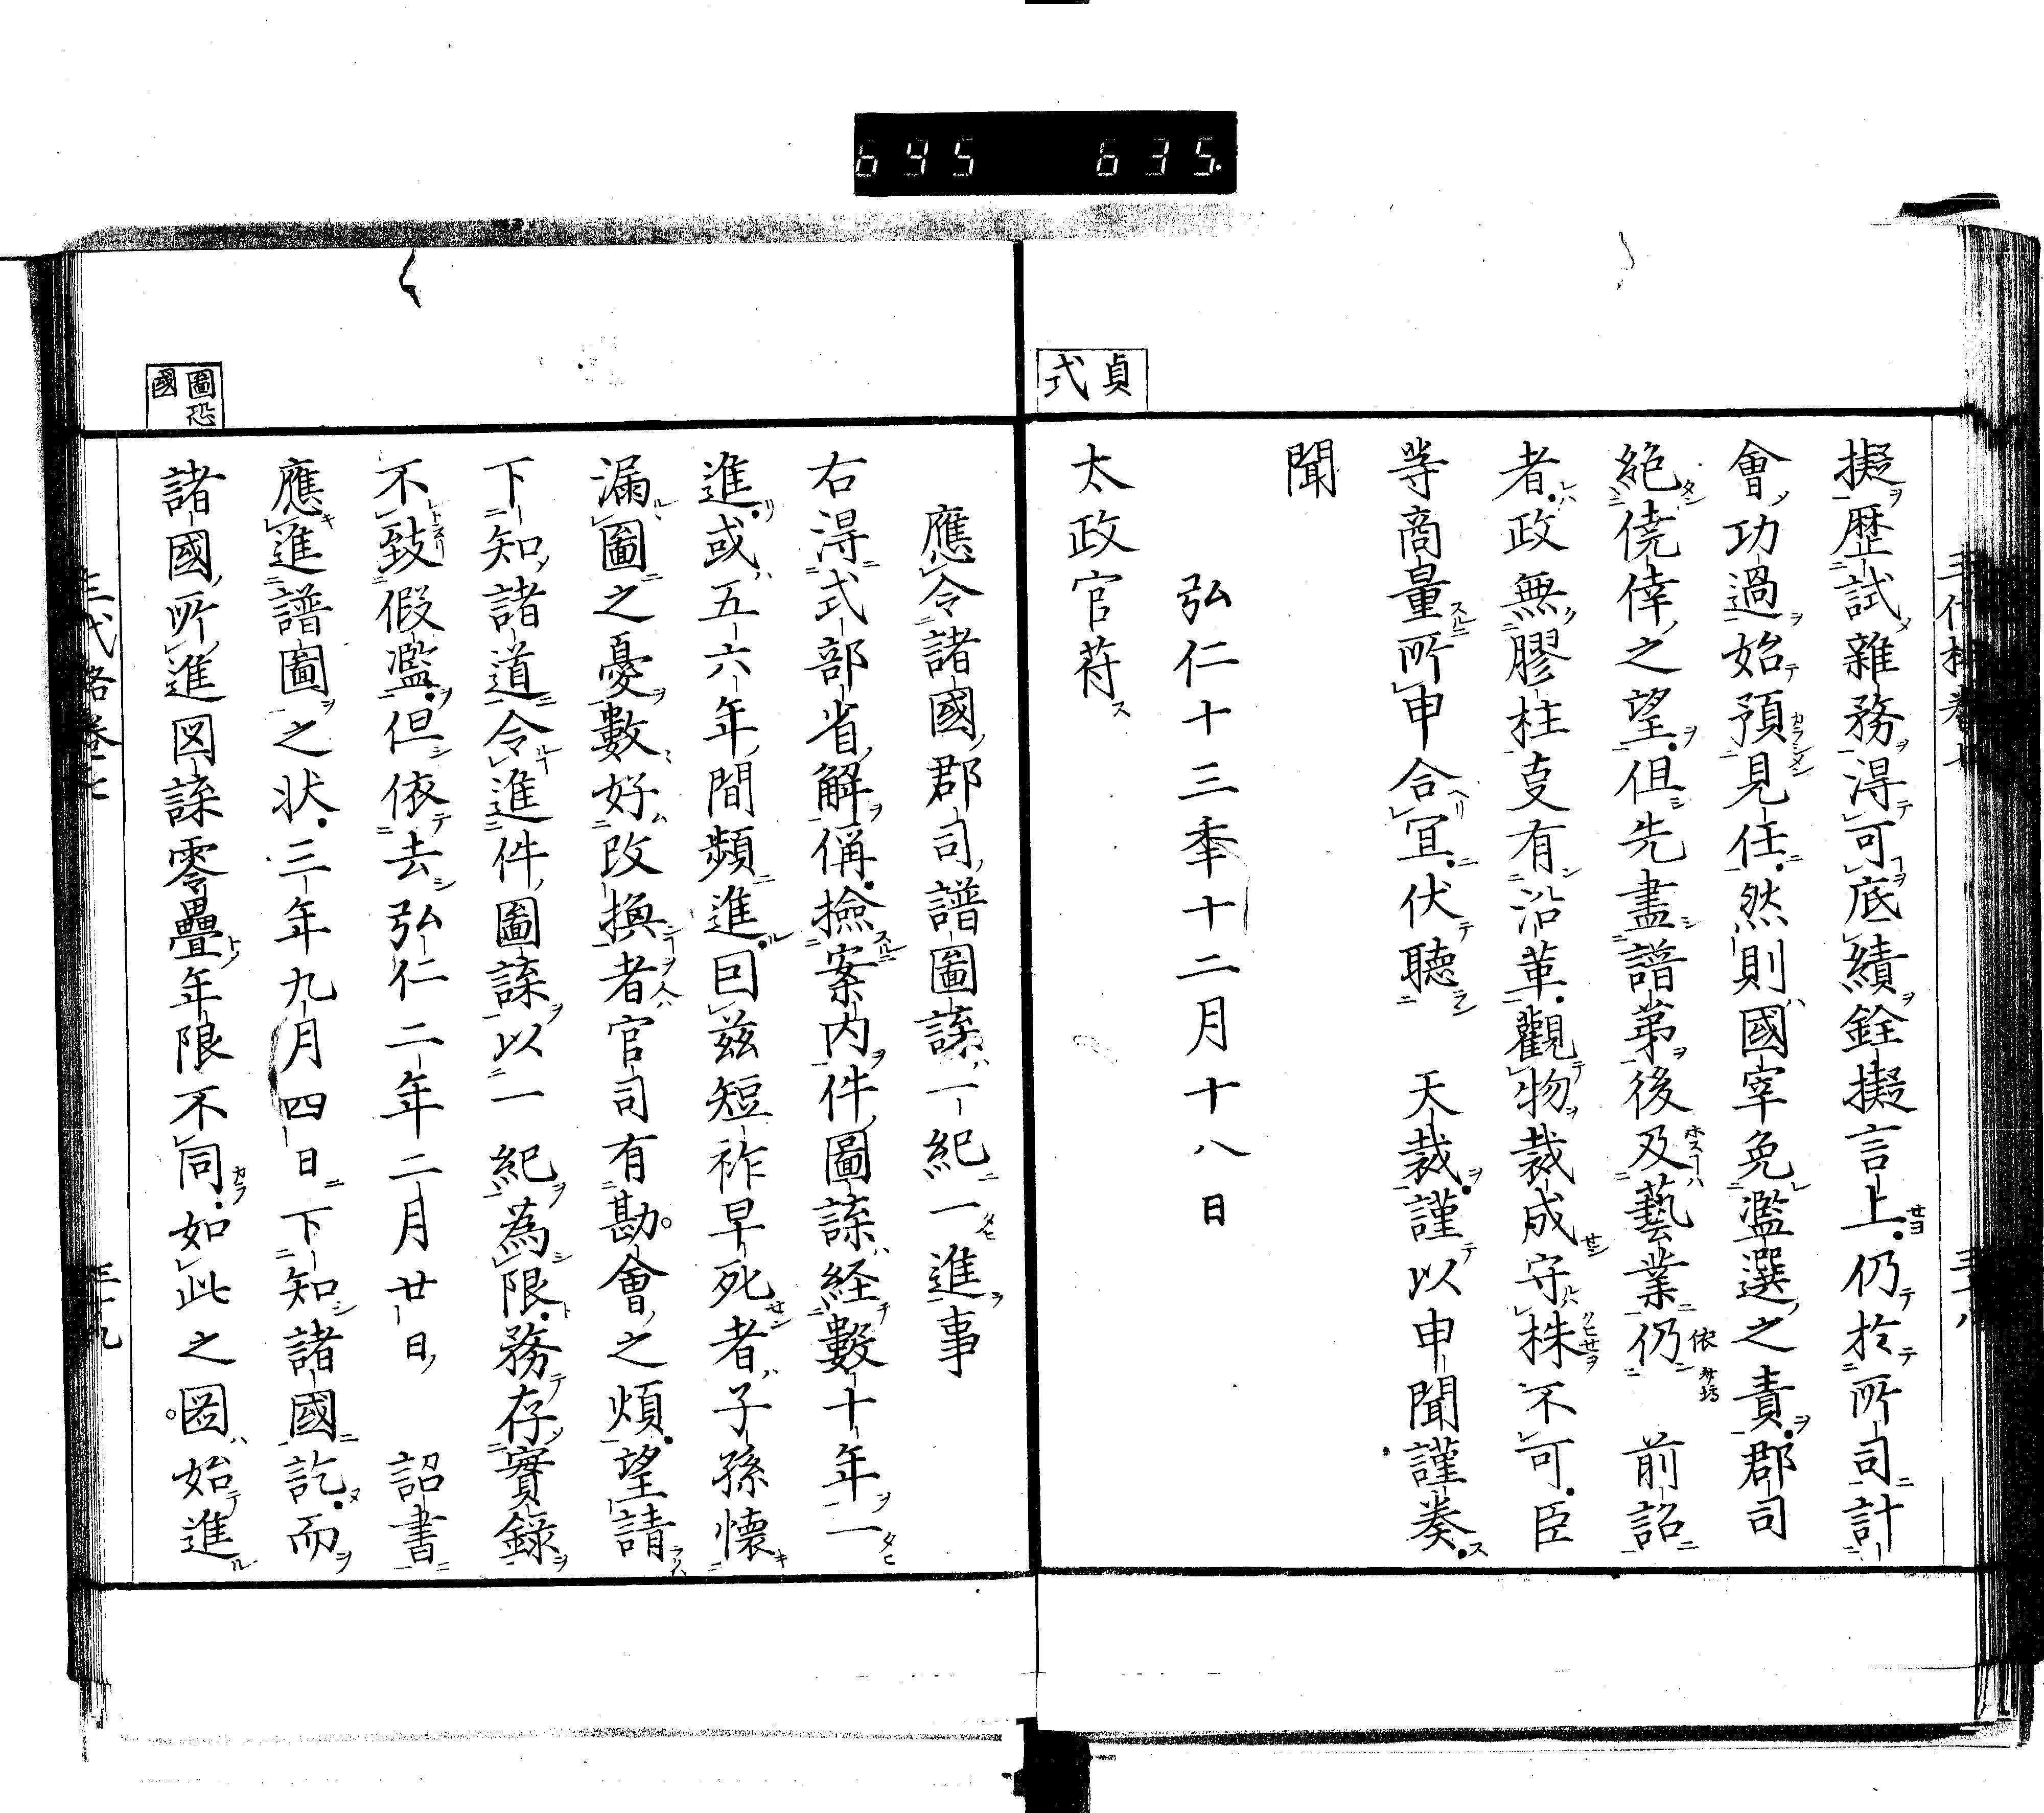 645 635.
貞式
擬歴試雜務得可底績銓擬言上仍於所司計
會功過始預見任然則國宰免濫選之責郡司
絶僥倖之望但先盡譜第後及藝業仍 前詔
者政無膠柱㕝有沿革觀物裁成守株不可臣
等商量所申合冝伏聽 天裁謹以申聞謹奏
聞
弘仁十三秊十二月十八日
太政官苻
圖恐國
應令諸國郡司譜圖諜一紀一進事
右淂式部省解偁撿案内件圖諜経數十年一
進或五六年間頻進曰玆短祚早死者子孫懐
漏圖之憂數好改換者官司有勘會之煩望請
下知諸道令進件圖諜以一紀為限務存實錄
不致假濫但依去弘仁二年二月廿日 詔書
應進譜圖之状三年九月四日下知諸國訖而
諸國所進図諜零疊年限不同如此之圖始進
三代格卷七 三十九